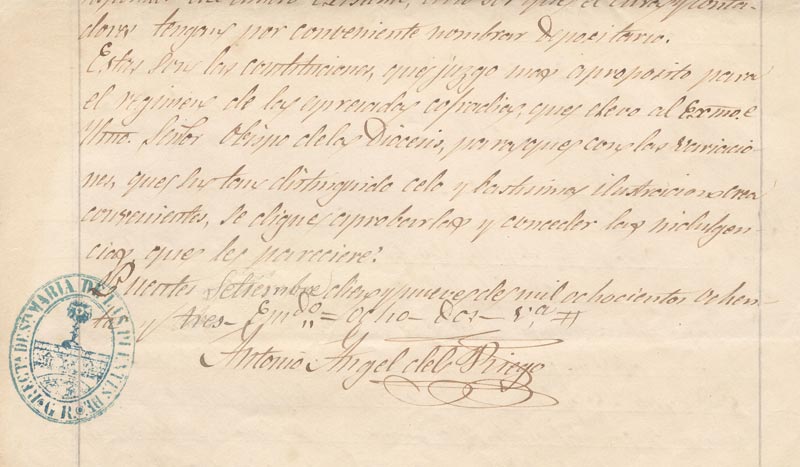 dores tengan por conveniente nombrar Depositario.
Estas son las constituciones, que juzgo mas aproposito para
el regimen de las apreciadas cofradias, que elevo al Exmo. e
Ylmo. Señor Obispo de la Diocesis, para que con las variacio-
nes, que su tan distinguido celo y vastisima ilustracion crea
convenientes, se digne aprobarlas y conceder las indulgen-
cias, que les pareciere.
Puentes Setiembre diez y nueve de mil ochocientos ochen-
ta y tres = Emdo = ocho = dos =
Antonio Angel del Riego
STA MARIA DE LAS PUENTES DE G. R.